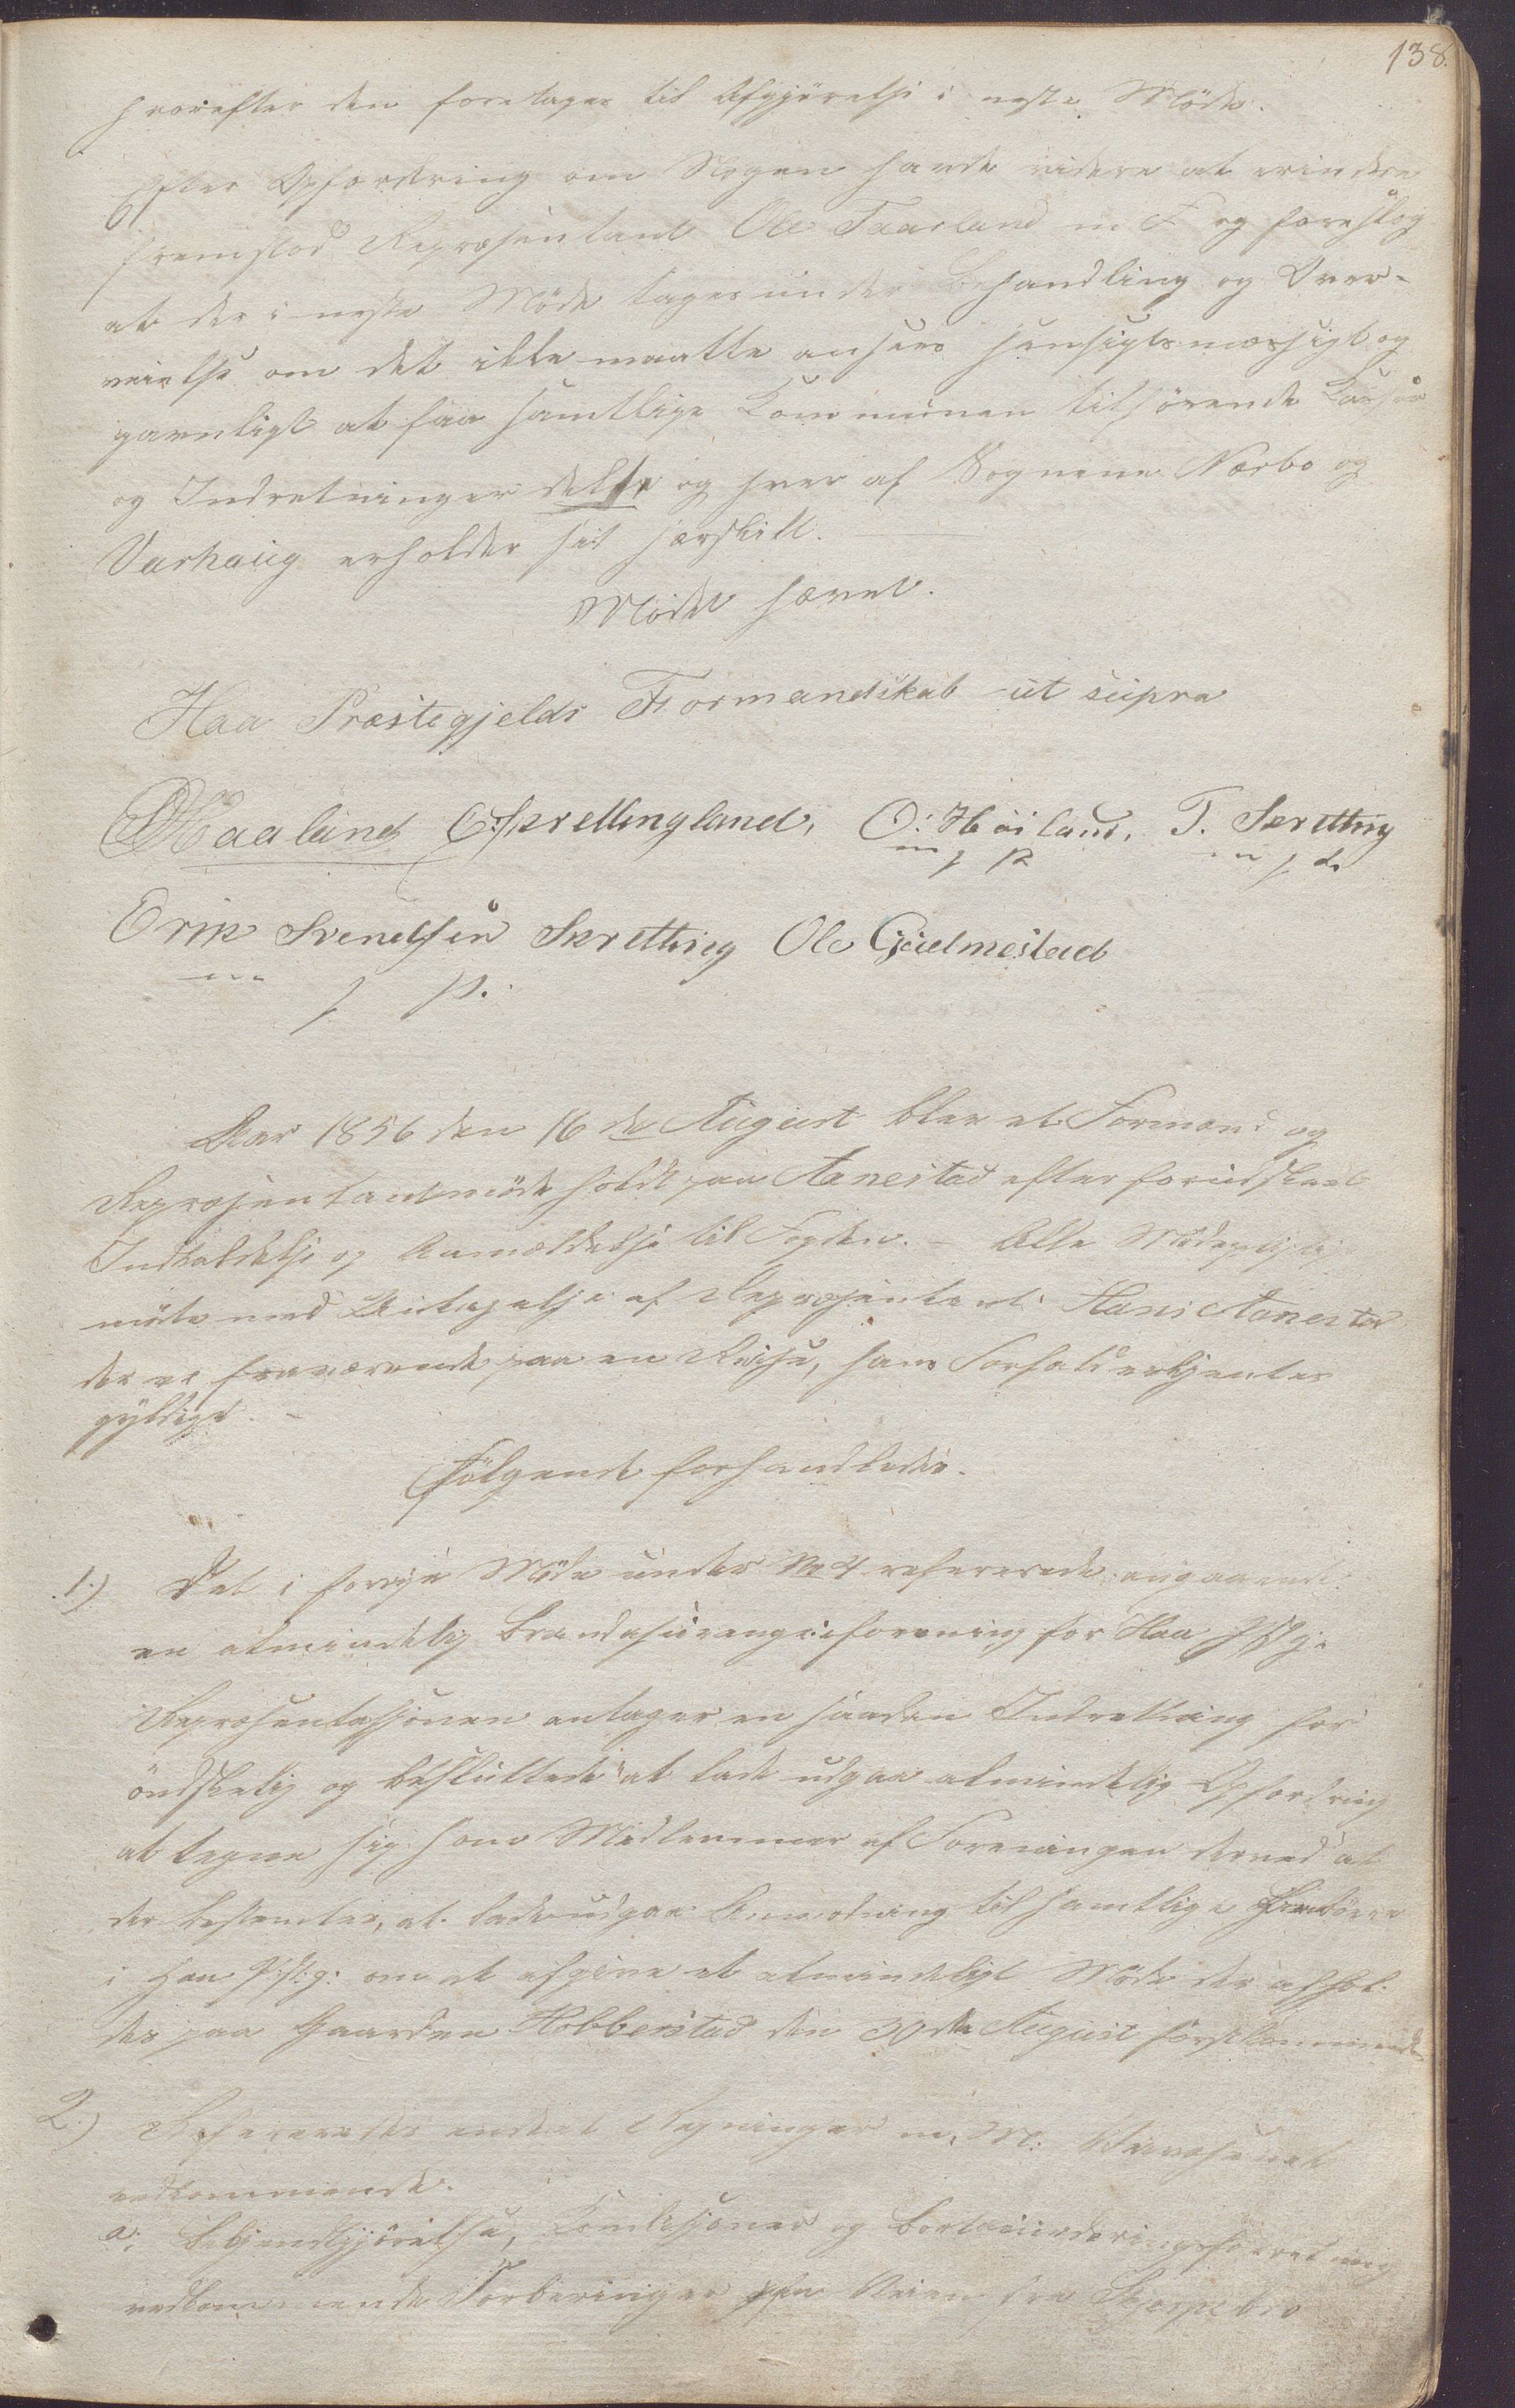 138.
hvorefter den foretages til Afgjørelse i neste Møde.
Efter Opfordring om Nogen havde videre at erindre
fremstod Repræsentant Ole Taarland m F og foreslog
at der i neste Møde tages under Behandling og Over-
veielse om det ikke maatte ansees hensigtsmæssigt og
gavnligt at faa samtlige Communen tilhørende Kasser
og Indretninger delte og hver af Sognene Nærbo og
Varhaug erholder sit særskilt.
Mødet hævet.
Haa Præstegjelds Formandskab ut supra
Haaland E. Sprettingland, O: Høiland, T. Skretting
m f p
Erik Svendsen Skretting Ole Gudmestad
m f p.
Aar 1856 den 16de August blev et Formand og
Repræsentantmøde holdt paa Aanestad efter forudskeet
Indkaldelse og Anmeldelse til Fogden. - Alle Mødepligtige
møtte med Undtagelse af Repræsentant Hans Aanestad
der er fraværende paa en Reise, hans Forfald erkjentes
gyldigt. -
Følgende forhandledes.
1.) Det i forrige Møde under No 4 refererede angaaende
en almindelig Brandasuranceforening for Haa Pstgj.
Repræsentasjonen antager en saadan Indretning for
ønskelig og besluttede at lade udgaa almindelig Opfordring
at tegne sig som Medlemmer af Foreningen derved at
der bestemtes, at lade udgaa Anmodning til samtlige
i Haa P:st:g: om at afgive et almindeligt Møde der afhol-
des paa Gaarden Hobberstad den 30de August førstkommende
2.) Refereredes endeel Regninger m. M: Veivæsenet
vedkommende.
a; Bekjendtgjørelse, Konditsjoner og
vedkommende Forberinger paa Veien fra